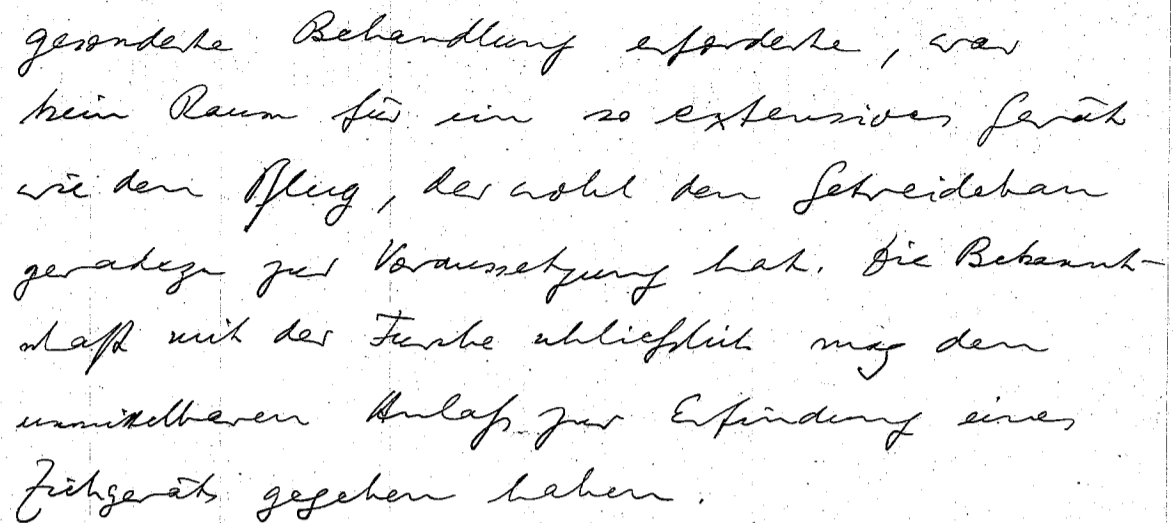 gesonderte Behandlung erforderte, war
kein Raum für ein so extensives Gerät
wie den Pflug, der wohl den Getreidebau
geradezu zur Voraussetzung hat. Die Bekannt-
schaft mit der Furche schließlich mag den
unmittelbaren Anlaß zur Erfindung eines
Ziehgeräts gegeben haben.